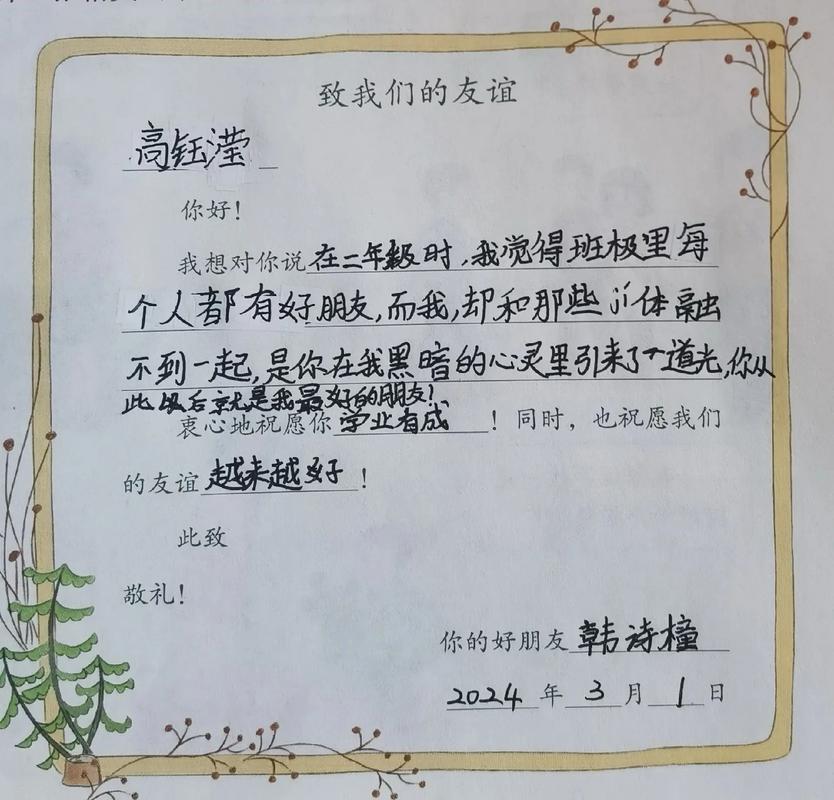 致我们的友谊
高钰滢
你好！
我想对你说在二年级时，我觉得班极里每
个人都有好朋友，而我，却和那些体融
不到一起，是你在我黑暗的心灵里引来了一道光，你从
此以后就是我最好的朋友！
衷心地祝愿你学业有成！同时，也祝愿我们
的友谊越来越好！
此致
敬礼！
你的好朋友韩诗橦
2024年3月1日